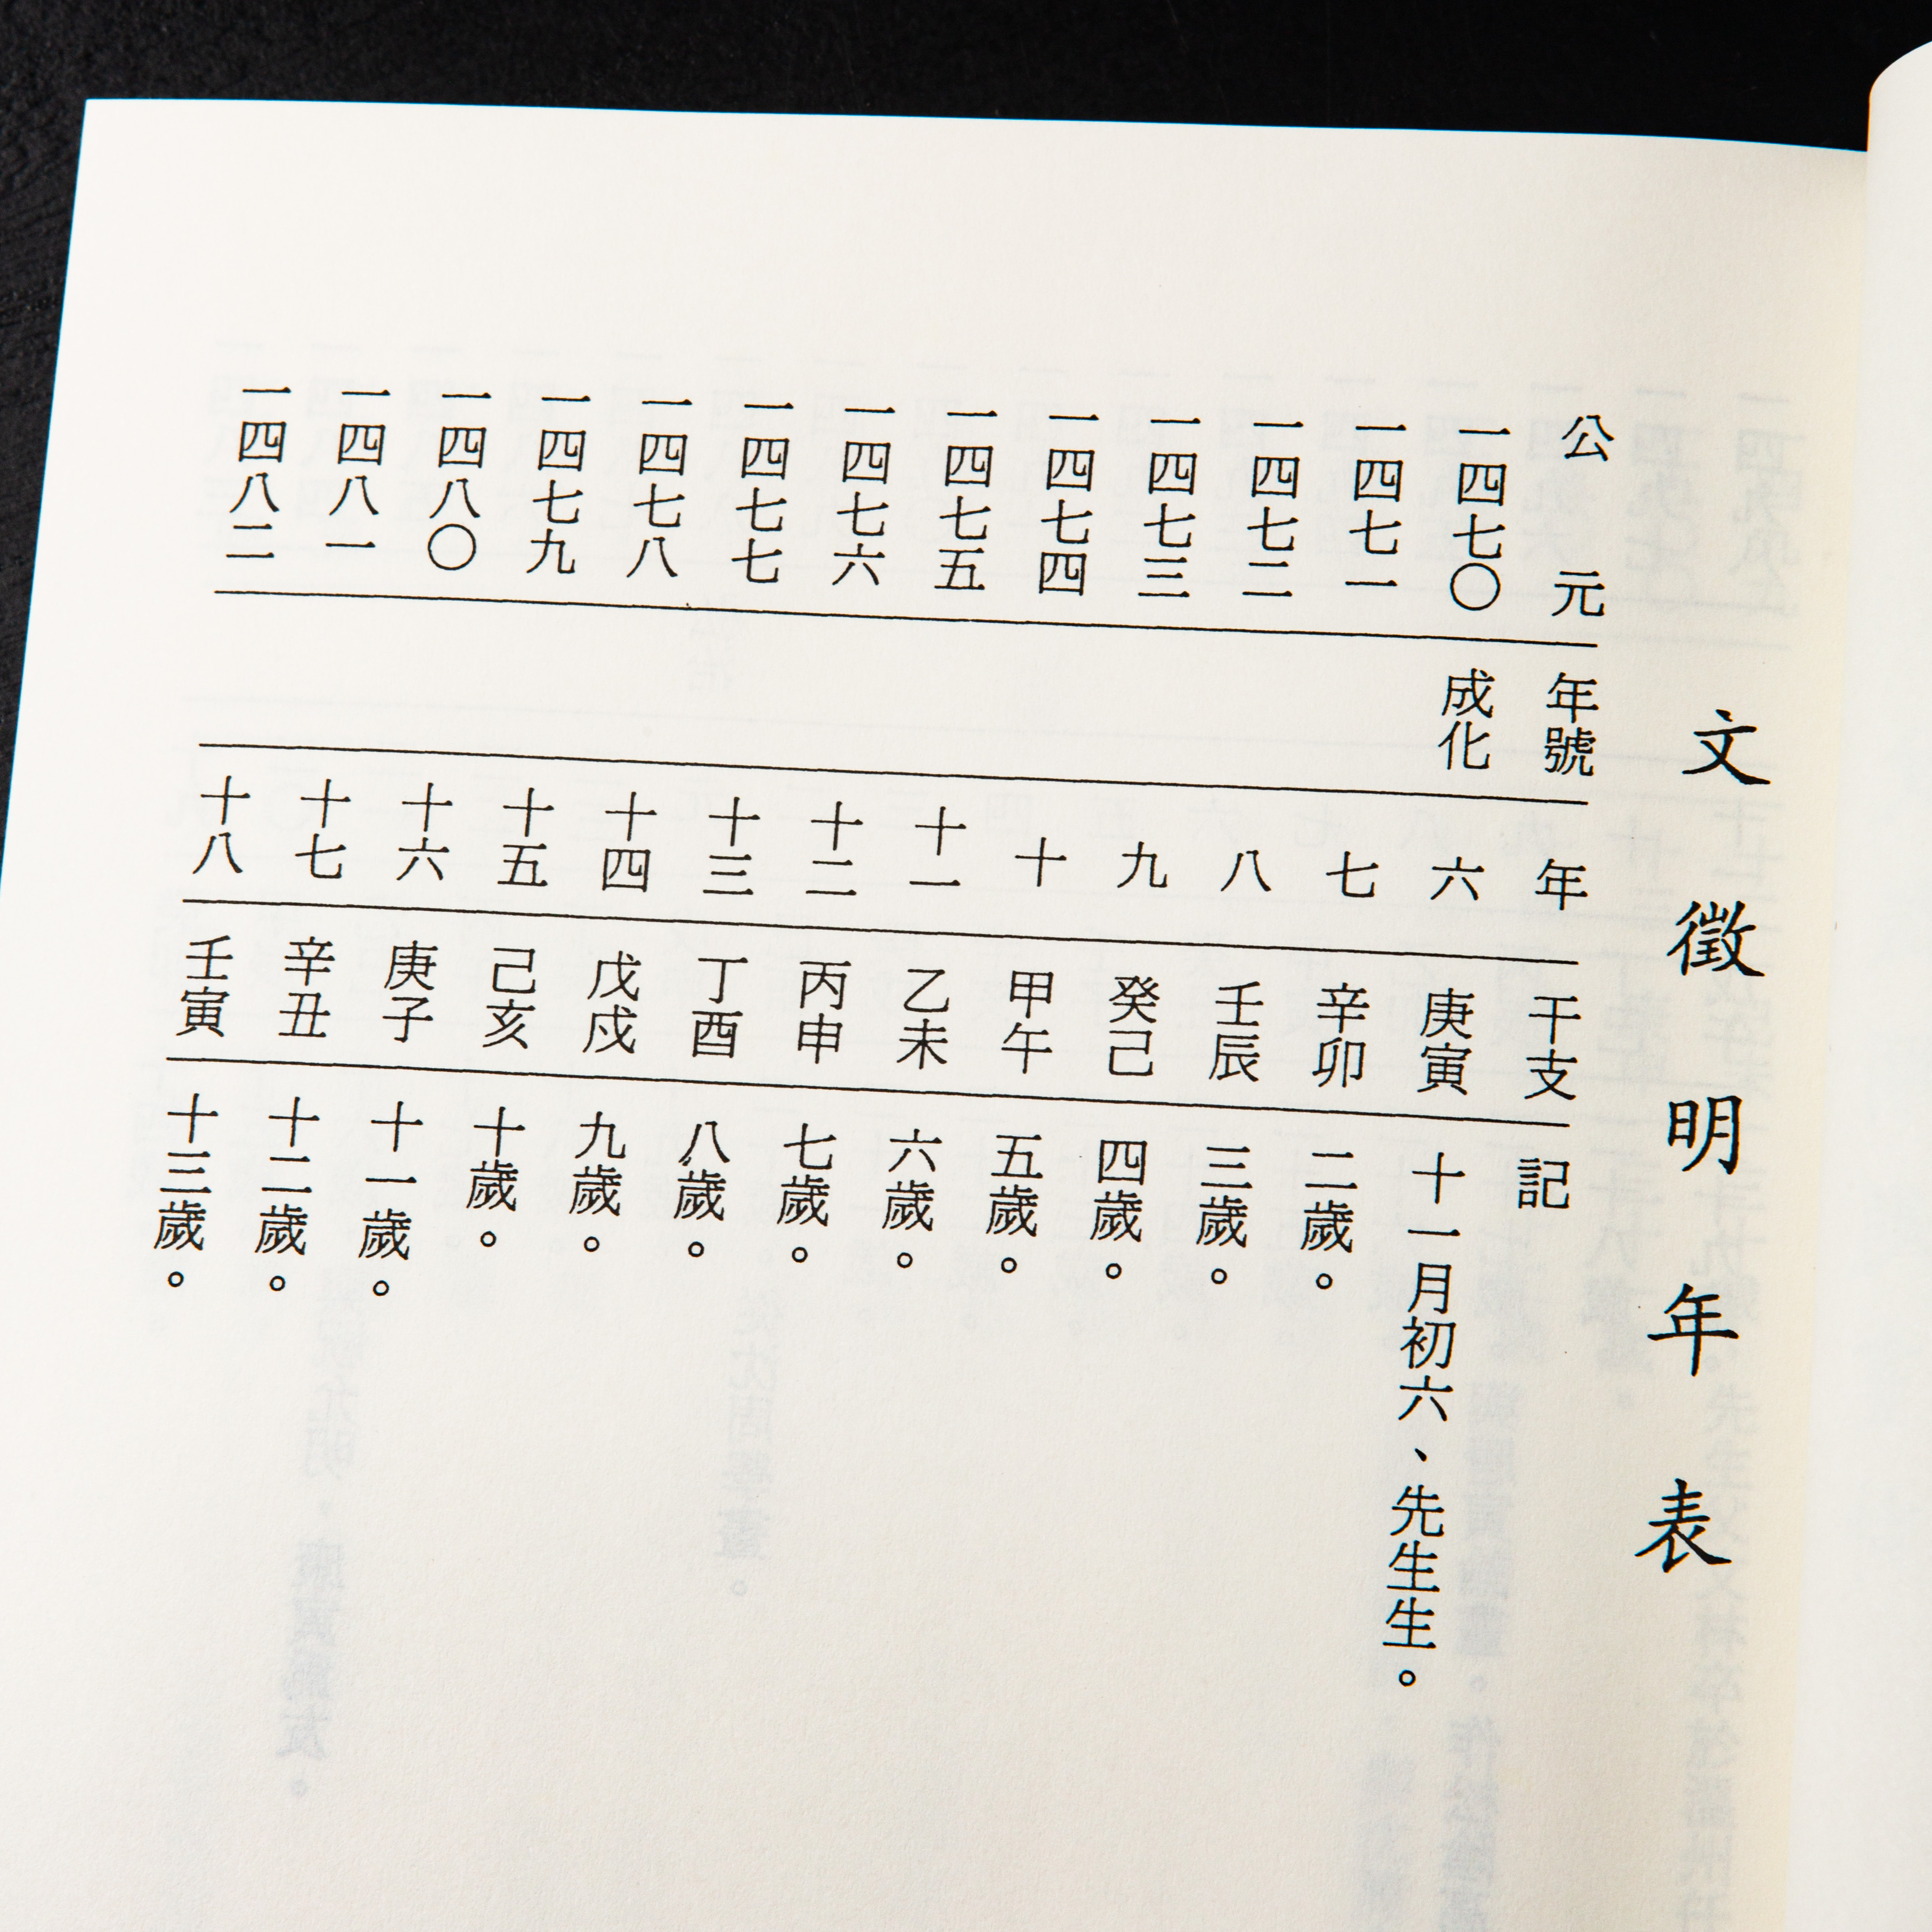 文徵明年表
公元 年號 年 干支 記
一四七〇 成化 六 庚寅 十一月初六、先生生。
一四七一 七 辛卯 二歲。
一四七二 八 壬辰 三歲。
一四七三 九 癸己 四歲。
一四七四 十 甲午 五歲。
一四七五 十一 乙未 六歲。
一四七六 十二 丙申 七歲。
一四七七 十三 丁酉 八歲。
一四七八 十四 戊戍 九歲。
一四七九 十五 己亥 十歲。
一四八〇 十六 庚子 十一歲。
一四八一 十七 辛丑 十二歲。
一四八二 十八 壬寅 十三歲。